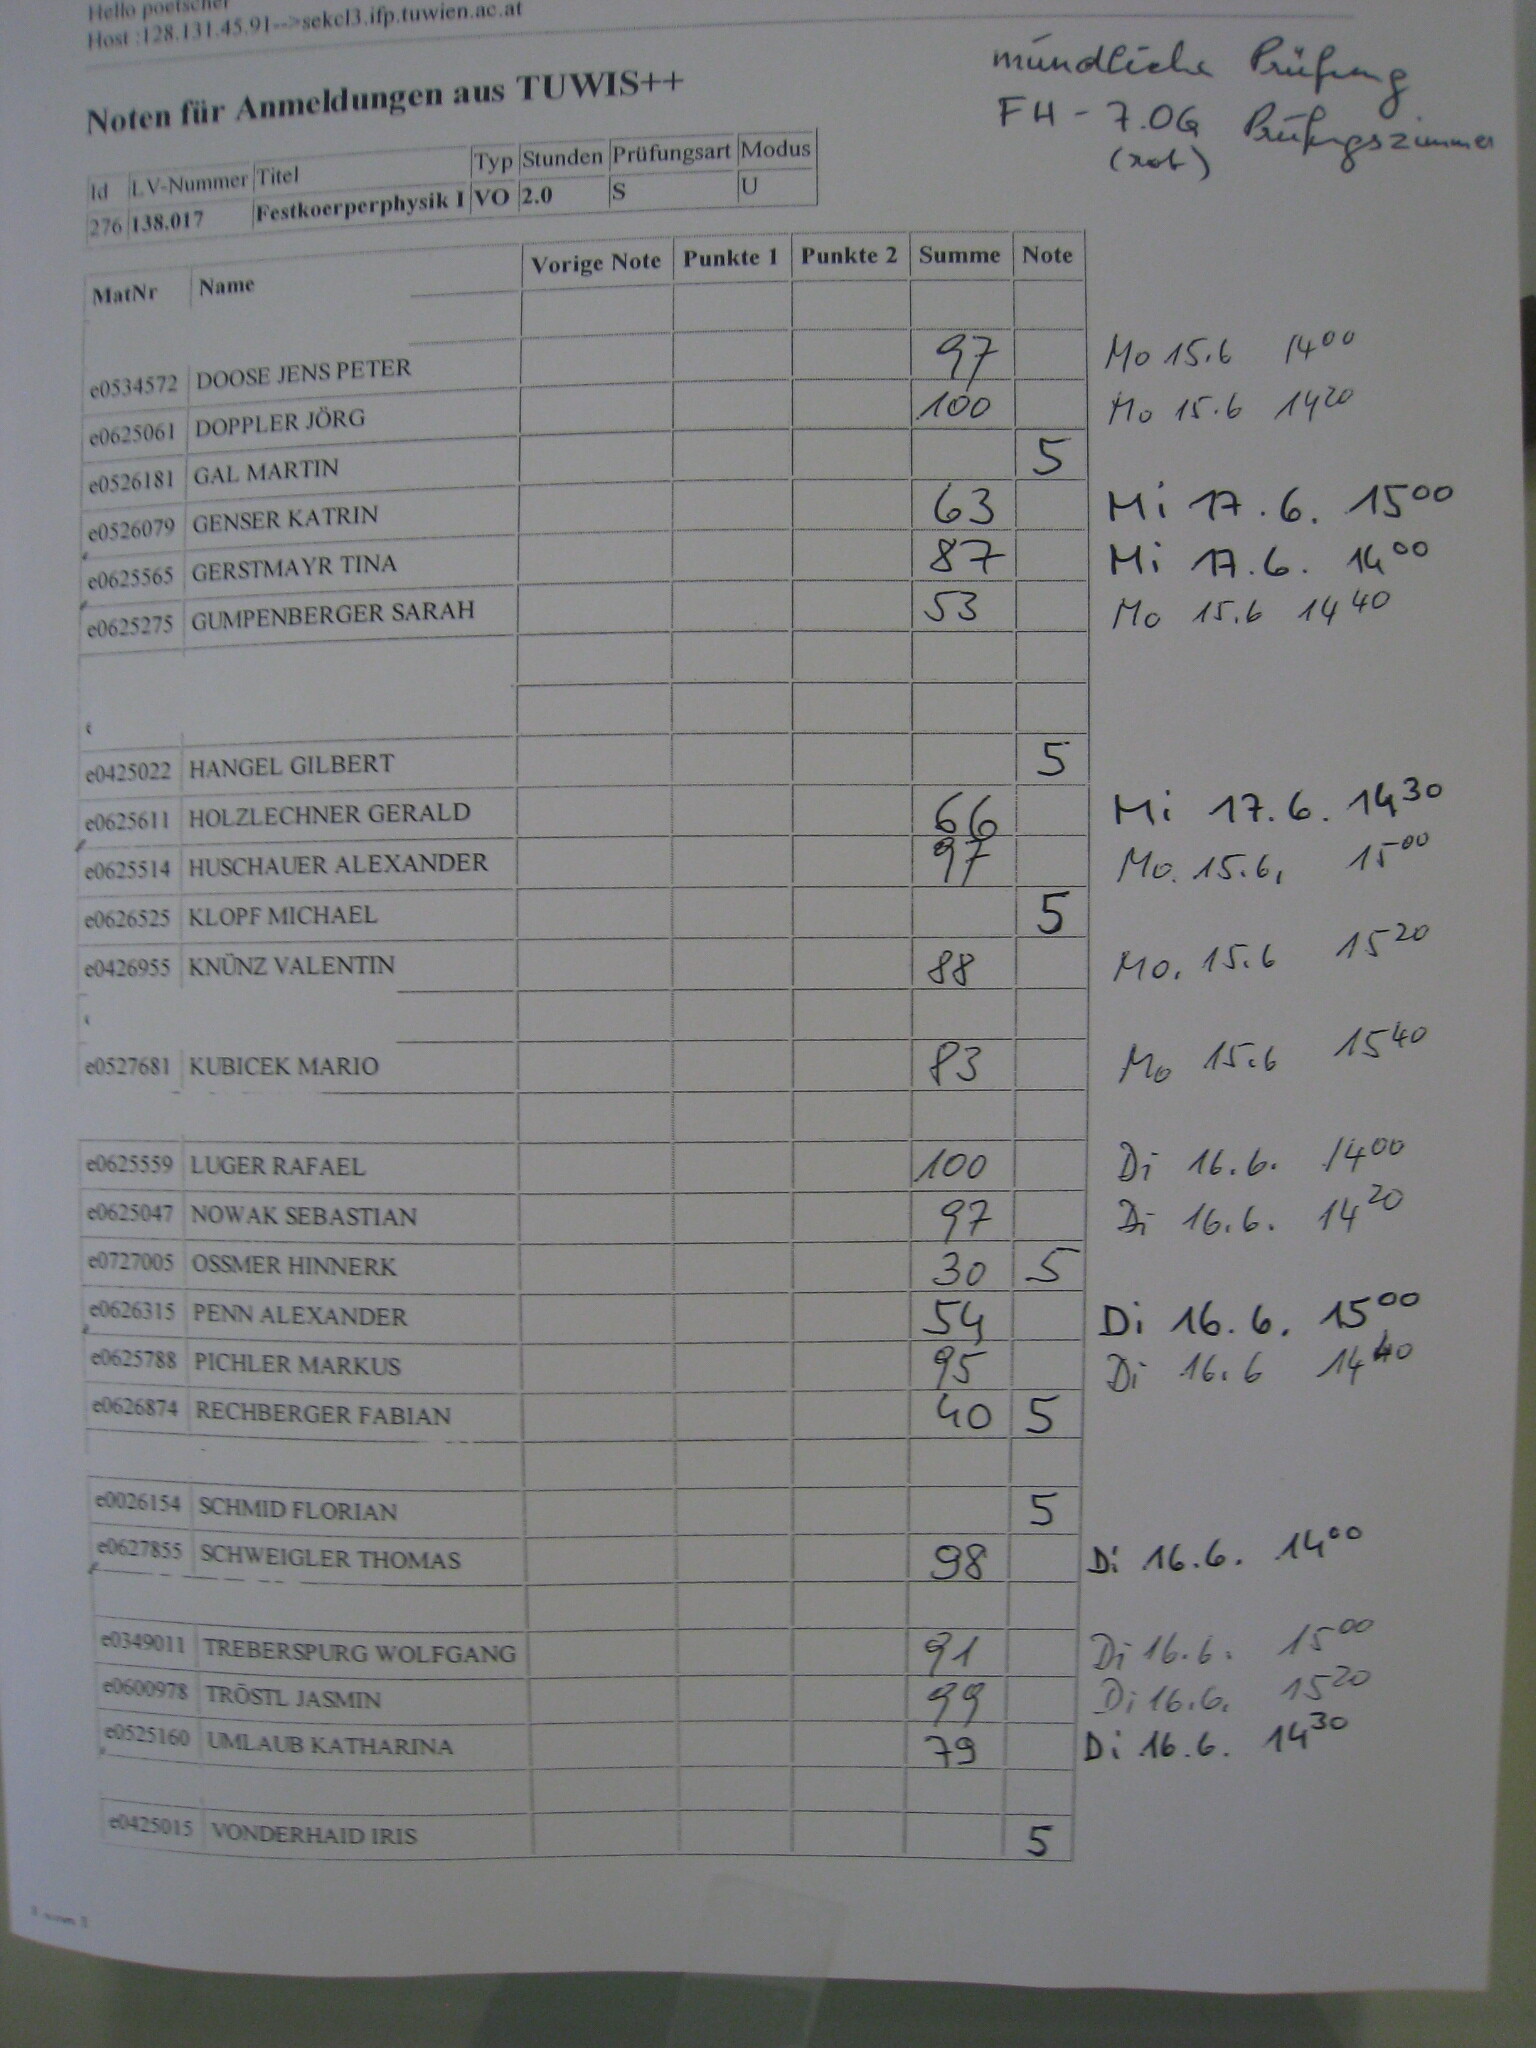 Hello poetscher
Host :128.131.45.91-->sekcl3.ifp.tuwien.ac.at
Noten für Anmeldungen aus TUWIS++
mündliche Prüfung
FH - 7.OG Prüfungszimmer
(rot)
Id LV-Nummer Titel Typ Stunden Prüfungsart Modus
276 138.017 Festkoerperphysik I VO 2.0 S U
MatNr Name Vorige Note Punkte 1 Punkte 2 Summe Note
e0534572 DOOSE JENS PETER 97 Mo 15.6 14 00
e0625061 DOPPLER JÖRG 100 Mo 15.6 14 20
e0526181 GAL MARTIN 5
e0526079 GENSER KATRIN 63 Mi 17.6. 15 00
e0625565 GERSTMAYR TINA 87 Mi 17.6. 14 00
e0625275 GUMPENBERGER SARAH 53 Mo 15.6 14 40
e0425022 HANGEL GILBERT 5
e0625611 HOLZLECHNER GERALD 66 Mi 17.6. 14 30
e0625514 HUSCHAUER ALEXANDER 97 Mo. 15.6, 15 00
e0626525 KLOPF MICHAEL 5
e0426955 KNÜNZ VALENTIN 88 Mo. 15.6 15 20
e0527681 KUBICEK MARIO 83 Mo 15.6 15 40
e0625559 LUGER RAFAEL 100 Di 16.6. 14 00
e0625047 NOWAK SEBASTIAN 97 Di 16.6. 14 20
e0727005 OSSMER HINNERK 30 5
e0626315 PENN ALEXANDER 54 Di 16.6. 15 00
e0625788 PICHLER MARKUS 95 Di 16.6 14 40
e0626874 RECHBERGER FABIAN 40 5
e0026154 SCHMID FLORIAN 5
e0627855 SCHWEIGLER THOMAS 98 Di 16.6. 14 00
e0349011 TREBERSPURG WOLFGANG 91 Di 16.6. 15 00
e0600978 TRÖSTL JASMIN 99 Di 16.6. 15 20
e0525160 UMLAUB KATHARINA 79 Di 16.6. 14 30
e0425015 VONDERHAID IRIS 5